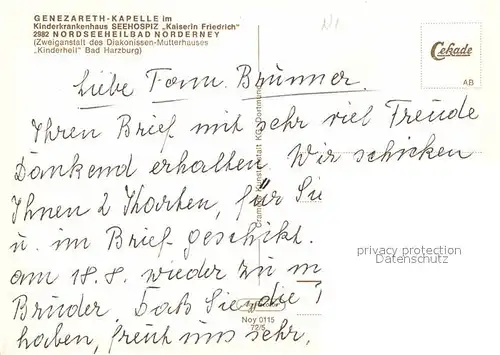 GENEZARETH-KAPELLE im
Kinderkrankenhaus SEEHOSPIZ „Kaiserin Friedrich"
2982 NORDSEEHEILBAD NORDERNEY
(Zweiganstalt des Diakonissen-Mutterhauses
„Kinderheil" Bad Harzburg)
Cekade
AB
Liebe Fam. Brünner.
Ihren Brief mit sehr viel Freude
Dankend erhalten. Wir schicken
Ihnen 2 Karten, für Sie
u. im Brief geschikt.
am 18.8. wieder zu m
Brüder. Daß Sie die
haben, freut uns sehr.
Cramers Kunstanstalt KG, Dortmund
privacy protection
Datenschutz
Noy 0115
72/5